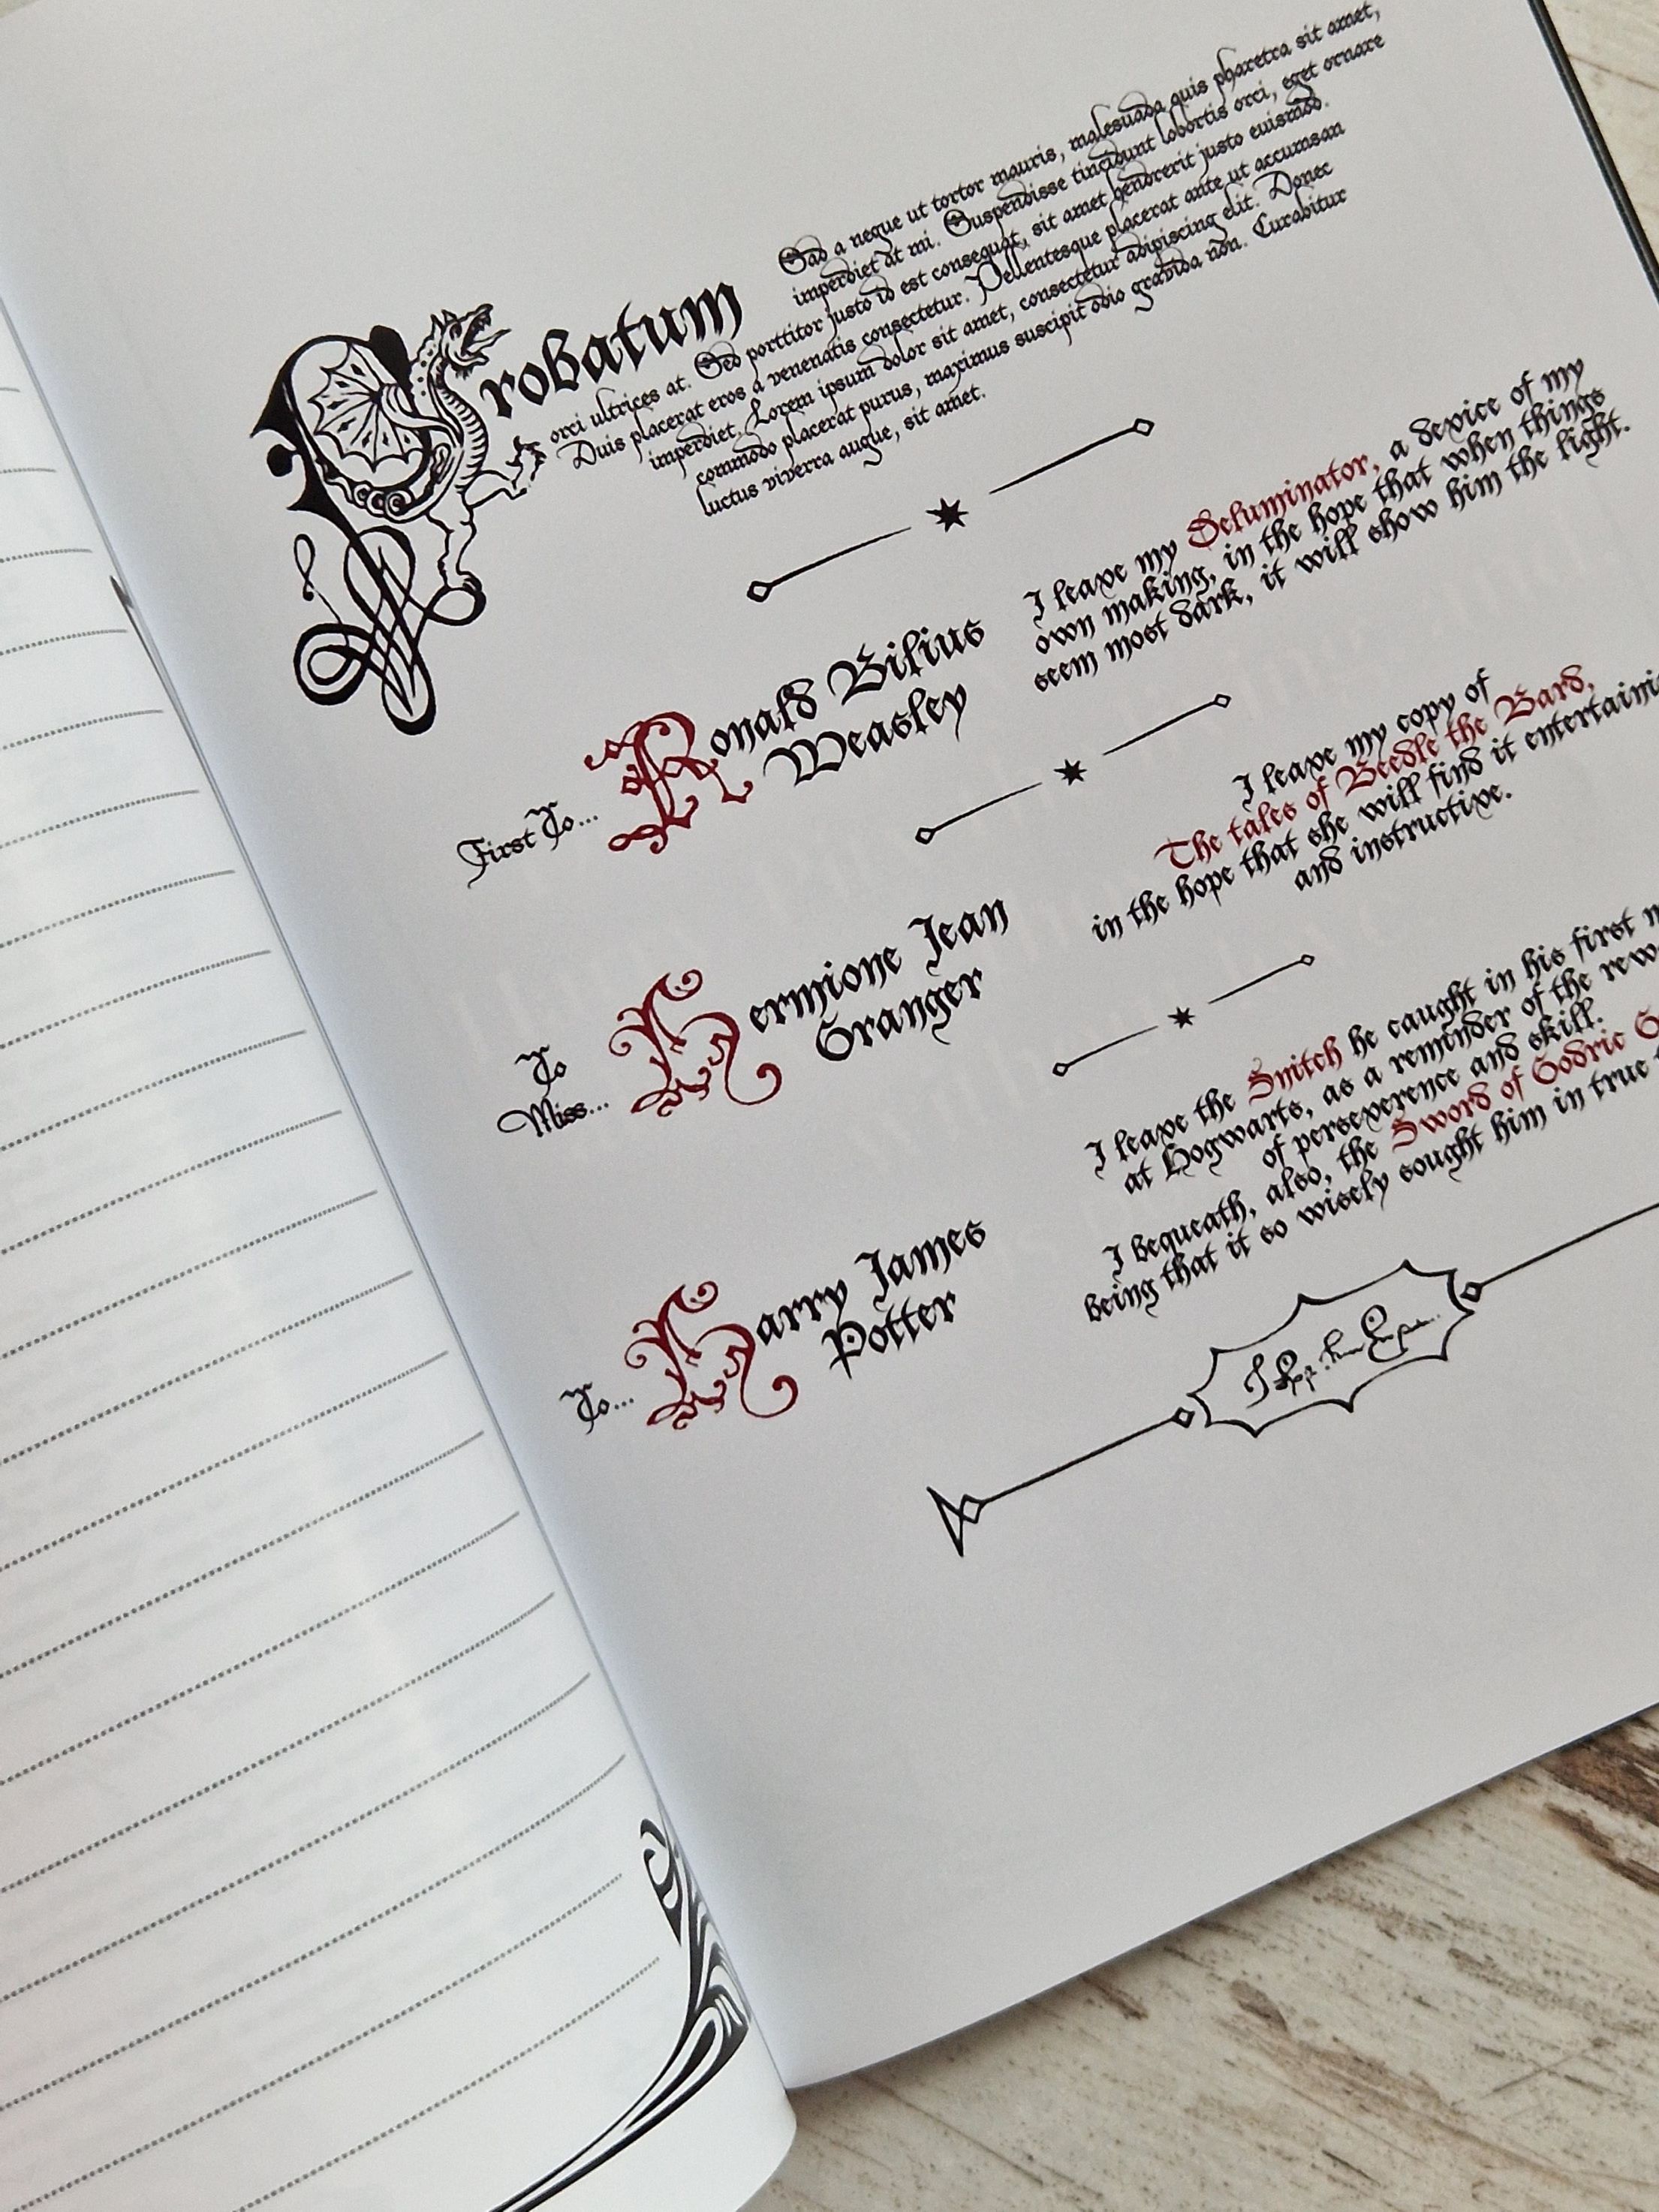 Probatum
Sad a neque ut tortor mauris, malesuada quis pharetra sit amet,
imperdiet at mi. Suspendisse tincidunt lobortis orci, eget ornare
orci ultrices at. Sed porttitor justo id est consequat, sit amet hendrerit justo euismod.
Duis placerat eros a venenatis consectetur. Pellentesque placerat ante ut accumsan
imperdiet. Lorem ipsum dolor sit amet, consectetur adipiscing elit. Donec
commodo placerat purus, maximus suscipit odio gravida non. Curabitur
luctus viverra augue, sit amet.
First To...
Ronald Bilius
Weasley
I leave my Deluminator, a device of my
own making, in the hope that when things
seem most dark, it will show him the light.
To
Miss...
Hermione Jean
Granger
I leave my copy of
The tales of Beedle the Bard,
in the hope that she will find it
and instructive.
To...
Harry James
Potter
I leave the Snitch he caught in his first
at Hogwarts, as a reminder of the
of perseverence and skill.
I bequeath, also, the Sword of Godric
being that it so wisely sought him in true